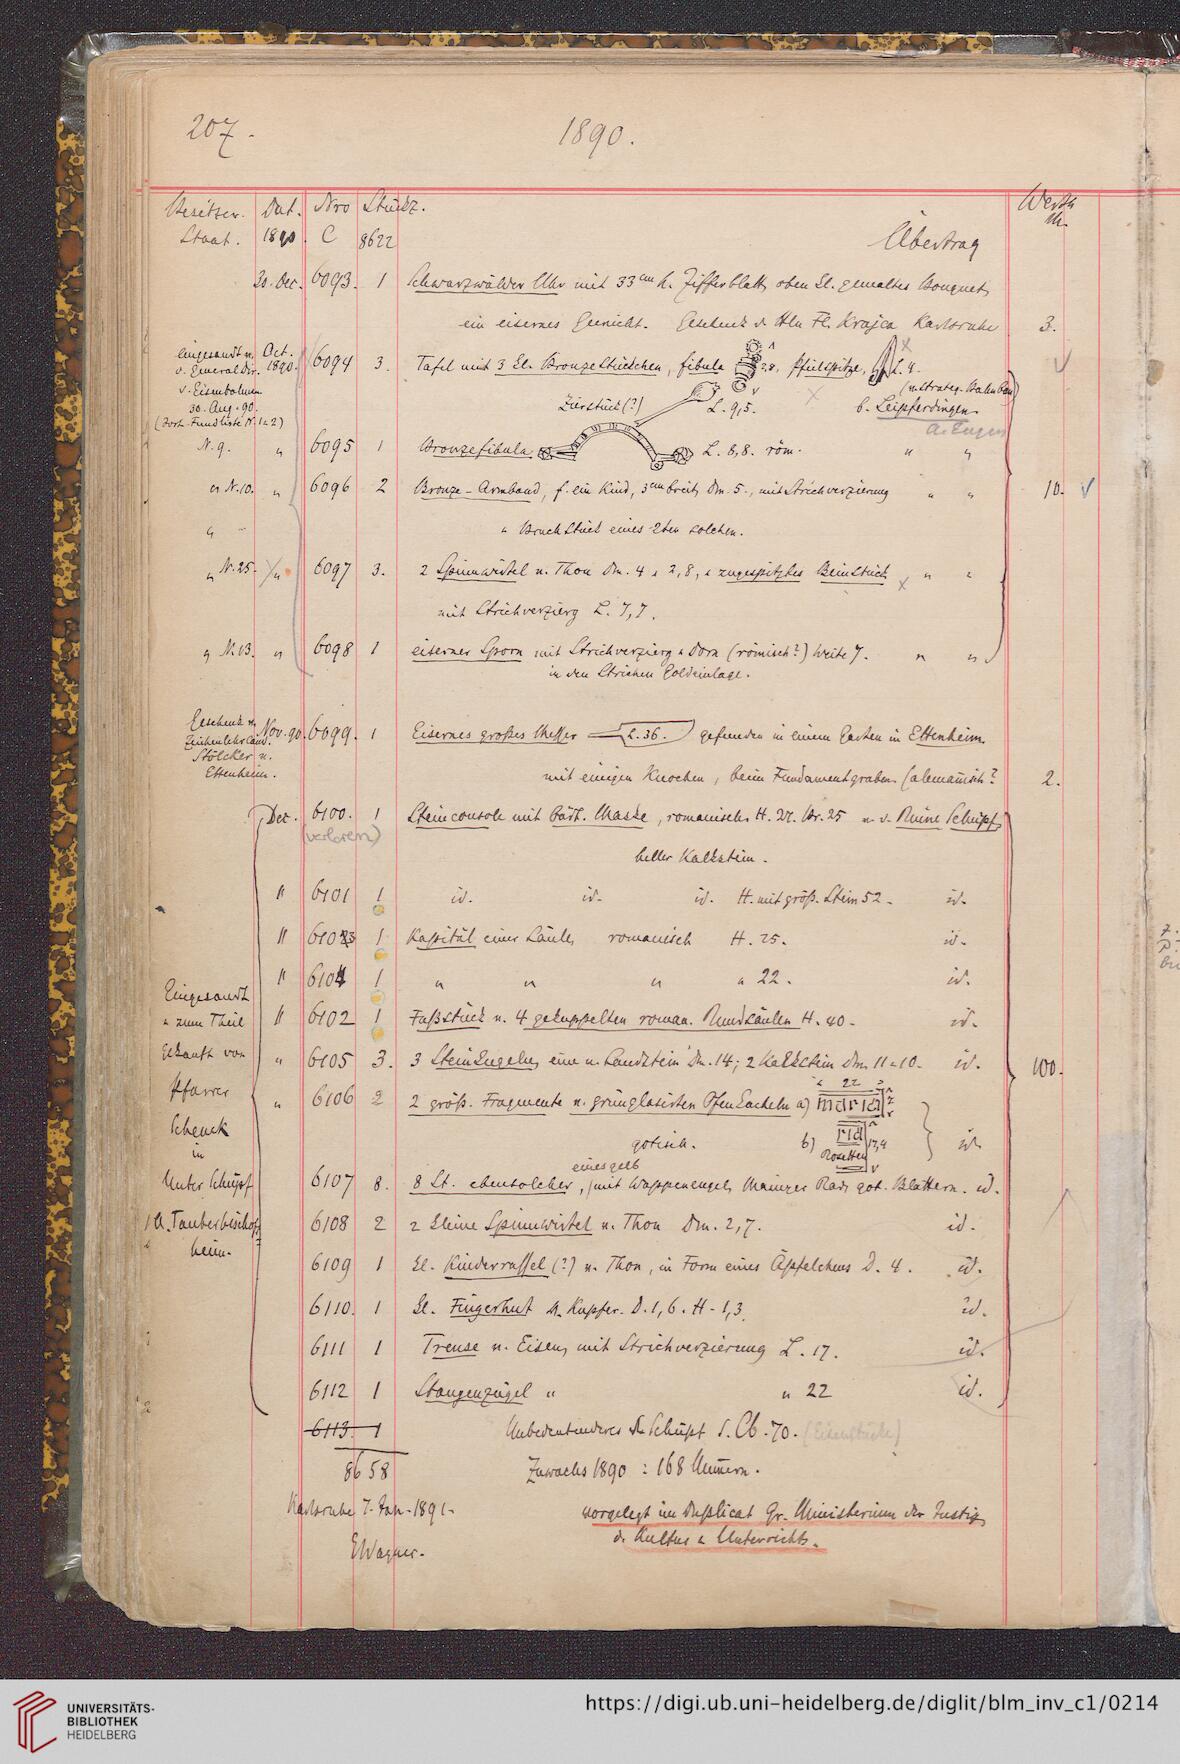 207.
1890.
Besitzer. Dat. Nro Stückz. Werth
M.
Staat. 1890. C 8622 Übertrag
30. Dec. 6093. 1 Schwarzwälder Uhr mit 33 cm h. Zifferblatt, oben kl. gemaltes Bouquet,
ein eisernes Gewicht. Geschenk d. Hrn Fl. Krajca Karlsruhe 3.
eingesandt v. Oct.
v. General Dir. 1890. 6094 3. Tafel mit 3 kl. Bronzestückchen, fibula 2,8, Pfeilspitze, L. 4.
v. Eisenbahnen (v. strateg. Bahnbau)
30. Aug. 90. Zierstück (?) L. 9,5. b. Leipferdingen
(Forts. Fundliste N. 1 u 2) A. Engen
N. 9. " 6095 1 Bronzefibula L. 6,8. röm. " "
" N. 10. " 6096 2 Bronze-Armband, f. ein Kind, 3 cm breit, Dm. 5., mit Strichverzierung " " 10.
" u Bruchstück eines 2ten solchen.
" N. 25. " 6097 3. 2 Spinnwirtel v. Thon Dm. 4 u 2,8, u zugespitztes Beinstück " "
mit Strichverzierg L. 7,7.
" N. 13. " 6098 1 eiserner Sporn mit Strichverzierg u Dorn (römisch?) Weite 7. " "
in den Strichen Goldeinlage.
Geschenk v.
Zeichenlehr Cand. Nov. 90. 6099. 1 Eisernes großes Messer L. 36. gefunden in einem Garten in Ettenheim
Stölcker v.
Ettenheim. mit einigen Knochen, beim Fundamentgraben (alemannisch? 2.
Dec. 6100. 1 Steinconsole mit bärt. Maske, romanisch, H. 21. Br. 25 v. d. Ruine Schüpf,
(verloren)
heller Kalkstein.
" 6101 1 id. id. id. H. mit größ. Stein 52. id.
" 6103 1 Kapitäl einer Säule, romanisch H. 25. id.
" 6104 1 " " " " 22. id.
Eingesandt
u zum Theil " 6102 1 Fußstück v. 4 gekuppelten roman. Rundsäulen H. 40. id.
erkauft von " 6105 3. 3 Steinkugeln, eine v. Sandstein Dm. 14; 2 Kalkstein Dm. 11 u 10. id. 100.
Pfarrer " 6106 2 2 größ. Fragmente v. grünglasirten Ofenkacheln a) 22 maria
Schenck
in gotisch. b) ria 17,4 id.
Rosetten
eines gelb
Unter Schüpf 6107 8. 8 St. ebensolcher, mit Wappenengel, Mainzer Rad, got. Blättern. id.
A. Tauberbischofs 6108 2 2 kleine Spinnwirtel v. Thon Dm. 2,7. id.
heim. 6109 1 kl. Kinderrassel (?) v. Thon, in Form eines Äpfelchens D. 4. id.
6110. 1 kl. Fingerhut v. Kupfer. D. 1,6. H. 1,3. id.
6111 1 Trense v. Eisen, mit Strichverzierung L. 17. id.
6112 1 Stangenzügel " " 22 id.
6113. 1 Unbedeutenderes v. Schüpf s. Cb. 70. (Eisenstücke)
8658 Zuwachs 1890 : 168 Numern.
Karlsruhe 7. Jan. 1891. vorgelegt im Duplicat Gr. Ministerium der Justiz,
d. Kultus u Unterrichts.
EWagner.
UNIVERSITÄTS-
BIBLIOTHEK
HEIDELBERG
https://digi.ub.uni-heidelberg.de/diglit/blm_inv_c1/0214